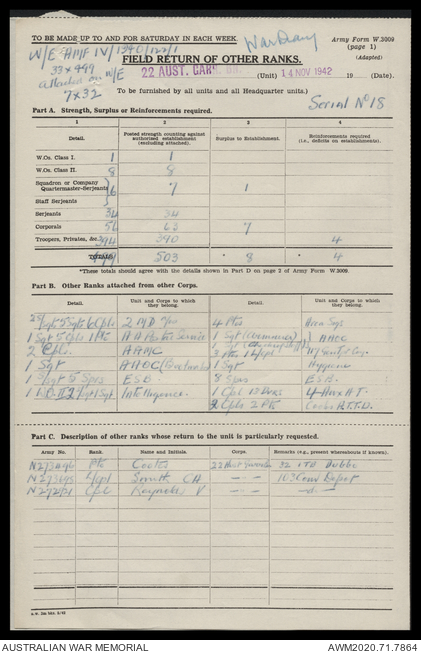 TO BE MADE UP TO AND FOR SATURDAY IN EACH WEEK.
Army Form W.3009
(page 1)
(Adapted)
War Diary
W/E AMF IV/1340/122/1
33 x 499
attached on W/E
7 x 32
FIELD RETURN OF OTHER RANKS.
22 AUST. GARR. BN. (Unit) 14 NOV 1942 19 (Date).
To be furnished by all units and all Headquarter units.)
Serial No 18
Part A. Strength, Surplus or Reinforcements required.
1 2 3 4
Detail. Posted strength counting against authorised establishment (excluding attached). Surplus to Establishment. Reinforcements required (i.e., deficits on establishments).
W.Os. Class I. 1 1
W.Os. Class II. 8 8
Squadron or Company Quartermaster-Serjeants 6 7 1
Staff Serjeants
Serjeants 34 34
Corporals 56 63 7
Troopers, Privates, &c. 394 390 4
TOTALS 499 503 * 8 * 4
*These totals should agree with the details shown in Part D on page 2 of Army Form W.3009.
Part B. Other Ranks attached from other Corps.
Detail. Unit and Corps to which they belong. Detail. Unit and Corps to which they belong.
5 Sgts 6 Cpls 2 MD 4 Ptes Area Sigs
1 Sgt 5 Cpls 1 Pte
2 Cpls AAMC
1 Sgt AAOC 1 Sgt Hygiene
1 Sgt 5 Sprs ESB 8 Sprs ESB
1 Sgt Intelligence 1 Cpl
2 Cpls 2 Ptes
Part C. Description of other ranks whose return to the unit is particularly requested.
Army No. Rank. Name and Initials. Corps. Remarks (e.g., present whereabouts if known).
Pte Coates 22 Aust Dubbo
L/Cpl Smith CA — " — 103 Conv Depot
Cpl Reynolds V — " — — " —
AUSTRALIAN WAR MEMORIAL
AWM2020.71.7864